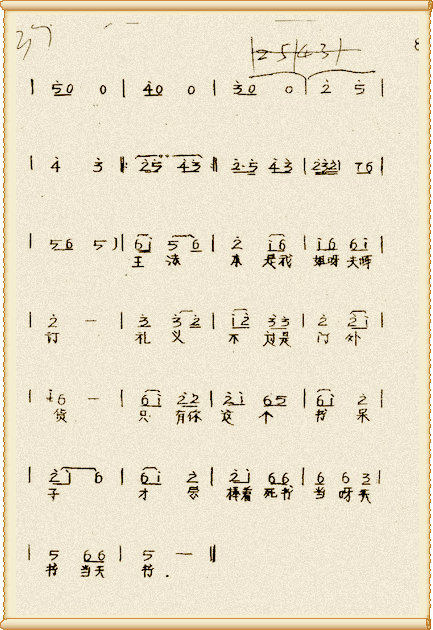 37
|25|43|
8
| 50 0 | 40 0 | 30 0 | 2 5 |
| 4 3 |: 25 43 | 2·5 43 | 2321 76 |
| 56 5 ) | 61 56 | 2 16 | 16 61 |
王 法 本 是我 姐呀 夫师
| 2 — | 3 32 | 12 33 | 2 21 |
订 礼 义 不 过是 门 外
| 16 — | 61 22 | 21 65 | 61 2 |
货 只 有你 这 个 书 呆
| 21 6 | 61 2 | 21 66 | 6 6 3 |
子 才 尽 捧着 死书 当 呀 天
| 5 66 | 5 — ‖
书 当天 书.